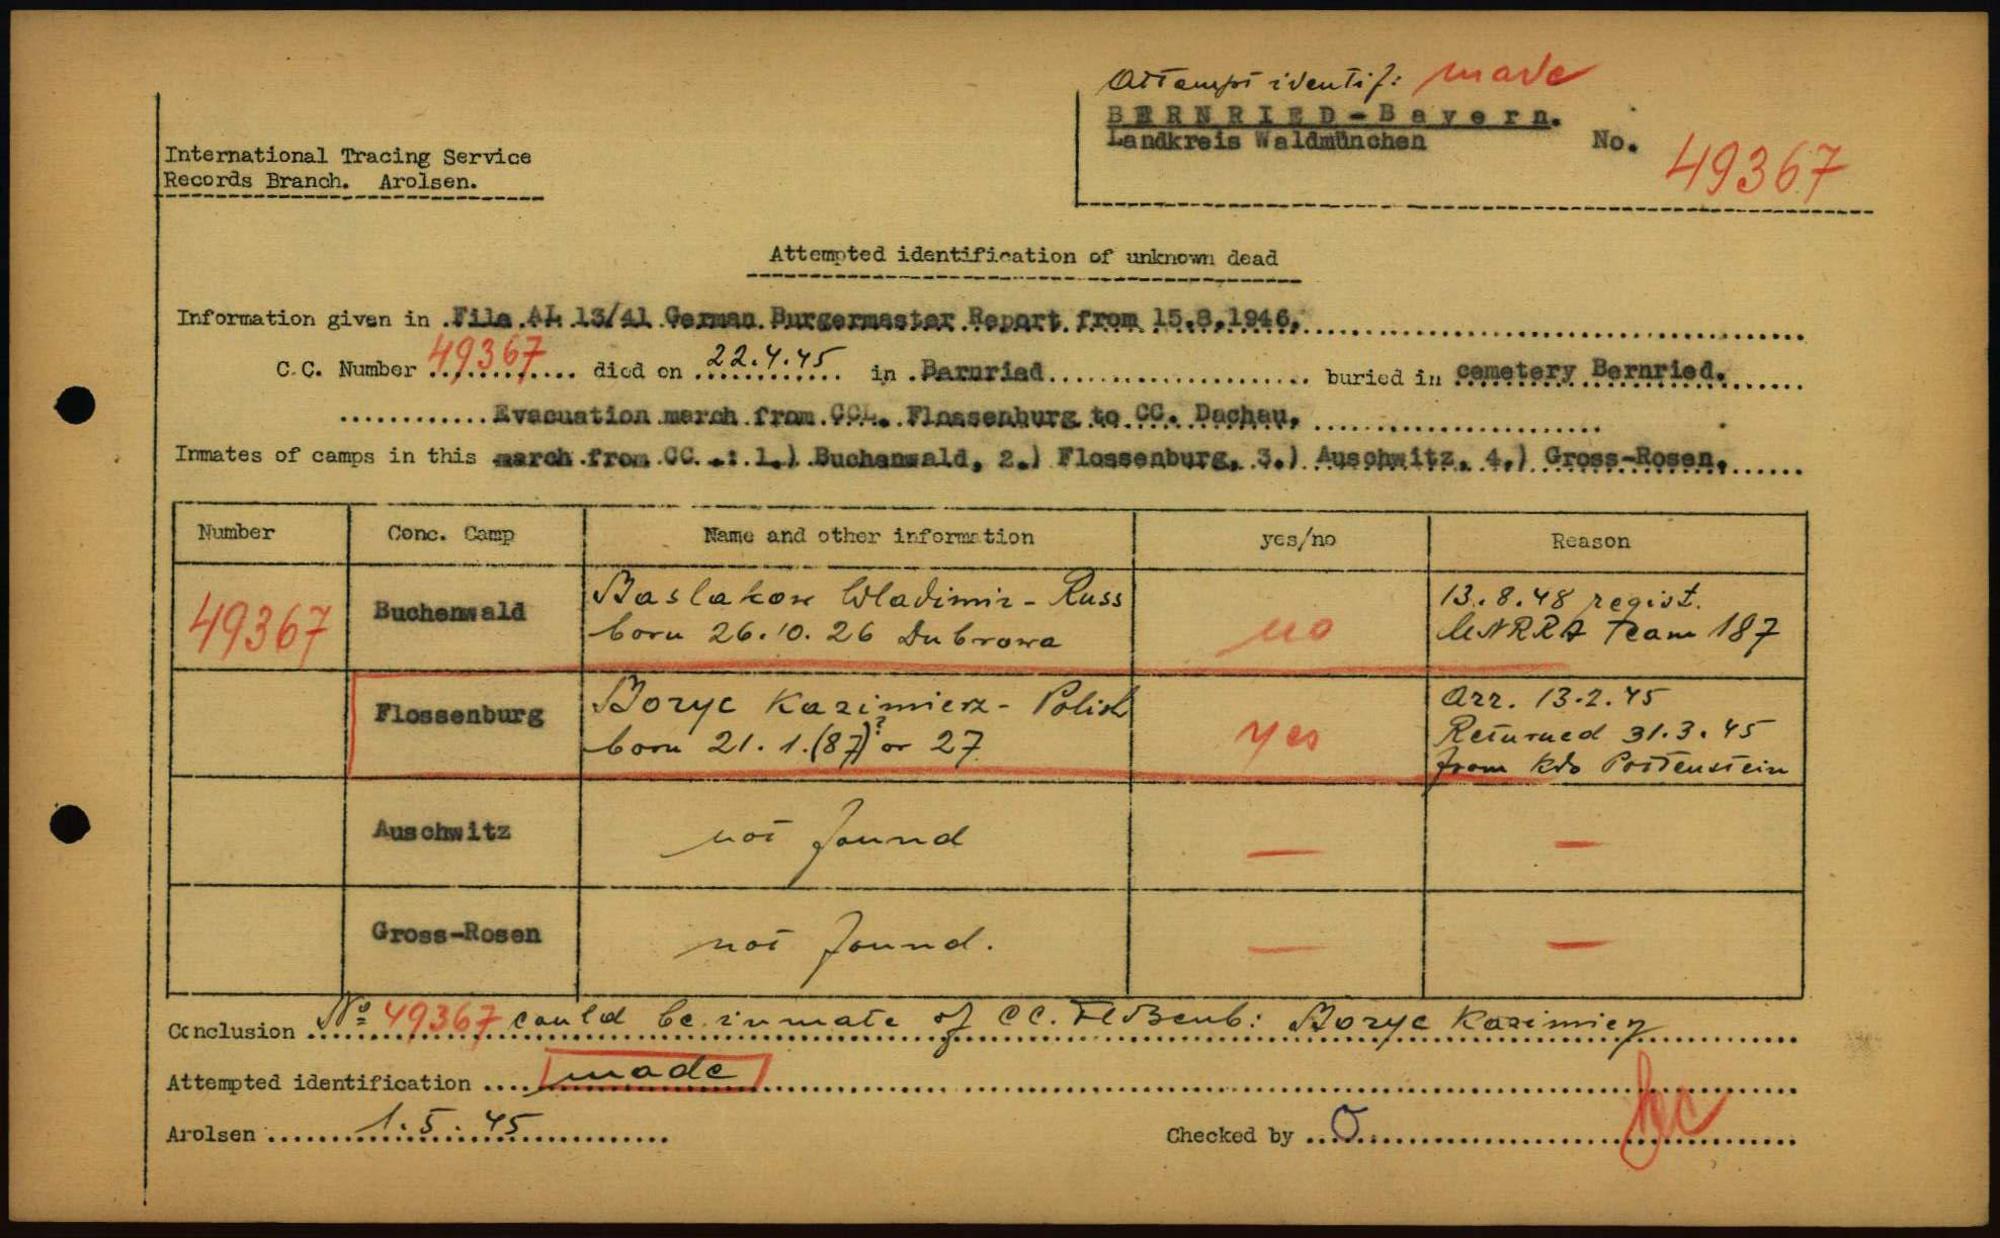 Attempt identif: made
BERNRIED-Bayern.
Landkreis Waldmünchen No. 49367
International Tracing Service
Records Branch. Arolsen.
Attempted identification of unknown dead
Information given in File AL 13/41 German Burgermaster Report from 15.8.1946.
C.C. Number 49367 died on 22.4.45 in Bernried buried in cemetery Bernried.
Evacuation march from CCL. Flossenburg to CC. Dachau.
Inmates of camps in this march from CC .: 1.) Buchenwald, 2.) Flossenburg, 3.) Auschwitz, 4.) Gross-Rosen.
Number Conc. Camp Name and other information yes/no Reason
49367 Buchenwald Baslakow Wladimir - Russ
born 26.10.26 Dubrowa
no
13.8.48 regist.
UNRRA Team 187
Flossenburg Boryc Kazimierz - Polish
born 21.1.(87)? or 27
yes
Arr. 13.2.45
Returned 31.3.45
from Kdo Pottenstein
Auschwitz not found — —
Gross-Rosen not found. — —
Conclusion No 49367 could be inmate of CC. Floßenb: Boryc Kazimierz
Attempted identification made
Arolsen 1.5.45 Checked by